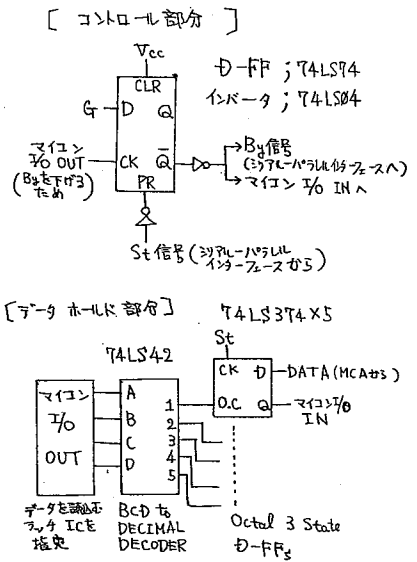 [ コントロール部分 ]
Vcc
CLR
G
D
Q
D-FF ; 74LS74
インバータ ; 74LS04
マイコン
I/O OUT
(Byを下げる
ため)
CK
Q̅
PR
By信号
(シリアル-パラレルインターフェースへ)
マイコン I/O INへ
St信号(シリアル-パラレル
インターフェースから)
[データ ホールド部分]
74LS374×5
St
74LS42
CK
D
DATA(MCAから)
O.C
Q
マイコンI/O
IN
マイコン
I/O
OUT
A
B
C
D
1
2
3
4
5
データを読込む
ラッチICを
指定
BCD to
DECIMAL
DECODER
Octal 3 State
D-FFs